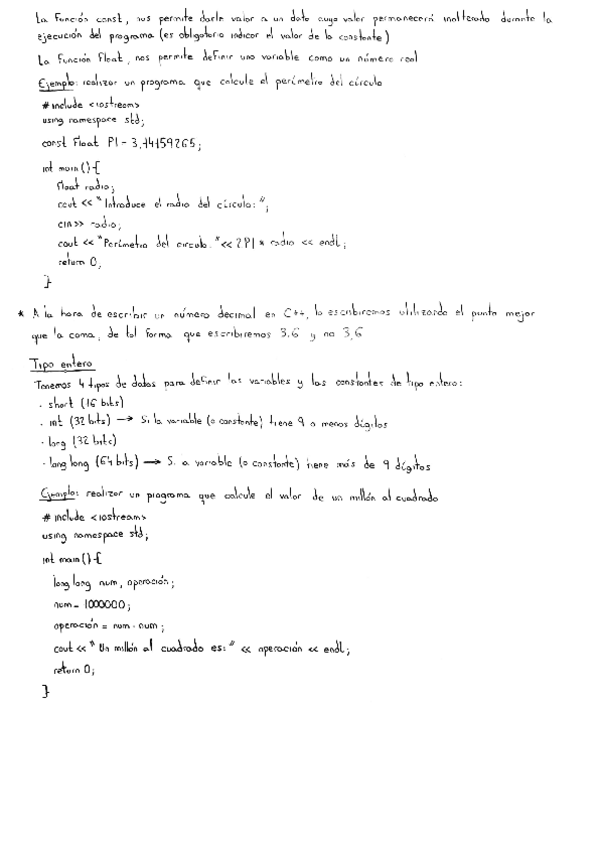 La Función const, nos permite darle valor a un dato cuyo valor permanecerá inalterado durante la
ejecución del programa (es obligatorio indicar el valor de la constante)
La Función Float, nos permite definir una variable como un número real
Ejemplo: realizar un programa que calcule el perímetro del círculo
# include <iostream>
using namespace std;
const Float PI = 3,14159265;
int main(){
Float radio;
cout << "Introduce el radio del círculo: ";
cin >> radio;
cout << "Perímetro del círculo: " << 2PI * radio << endl;
return 0;
}
* A la hora de escribir un número decimal en C++, lo escribiremos utilizando el punto mejor
que la coma, de tal forma que escribiremos 3.6 y no 3,6
Tipo entero
Tenemos 4 tipos de datos para definir las variables y las constantes de tipo entero:
· short (16 bits)
· int (32 bits) → Si la variable (o constante) tiene 9 o menos dígitos
· long (32 bits)
· long long (64 bits) → Si a variable (o constante) tiene más de 9 dígitos
Ejemplo: realizar un programa que calcule el valor de un millón al cuadrado
# include <iostream>
using namespace std;
int main(){
long long num, operación;
num = 1000000;
operación = num · num;
cout << " Un millón al cuadrado es: " << operación << endl;
return 0;
}